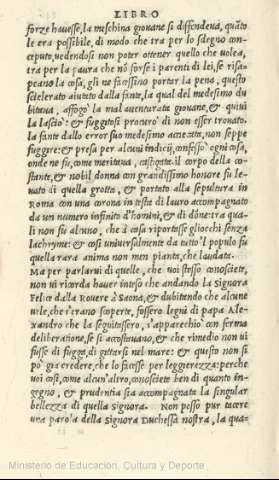 LIBRO
forze hauesse, la meschina giouane si diffendeua, quāto
le era possibile, di modo che tra per lo sdegno con-
ceputo, uedendosi non poter ottener quello che uolea,
tra per la paura che nō forse i parenti di lei, se risa-
peano la cosa, gli ne facessino portar la pena, questo
scelerato aiutato dalla fante, la qual del medesimo du
bitaua, affogò la mal auenturata giouane, & quiui
la lasciò: & fuggitosi procurò di non esser trouato.
la fante dallo error suo medesimo acciecata, non seppe
fuggire: & presa per alcuni indicij, confessò ogni cosa,
onde ne fu, come meritaua, castigata. il corpo della co-
stante, & nobil donna con grandissimo honore fu le-
uato di quella grotta, & portato alla sepultura in
Roma con una corona in testa di lauro accompagnato
da un numero infinito d'homini, & di dōne: tra qua-
li non fu alcuno, che à casa riportasse gliocchi senza
lachryme: & cosi uniuersalmente da tutto'l populo fu
quella rara anima non men pianta, che laudata.
Ma per parlarui di quelle, che uoi stesso conoscete,
non ui ricorda hauer inteso che andando la signora
Felice dalla Rouere à Saona, & dubitando che alcune
uele, che s'erano scoperte, fossero legni di papa Ale-
xandro che la seguitassero, s'apparecchiò con ferma
deliberatione, se si accostauano, & che rimedio non ui
fusse di fugga, di gittarsi nel mare: & questo non si
pò gia credere, che lo facesse per leggerezza: perche
uoi cosi, come alcun'altro, conoscete ben di quanto in-
gegno, & prudentia sia accompagnata la singular
bellezza di quella signora. Non posso pur tacere
una parola della signora Duchessa nostra, la qua-
Ministerio de Educación, Cultura y Deporte